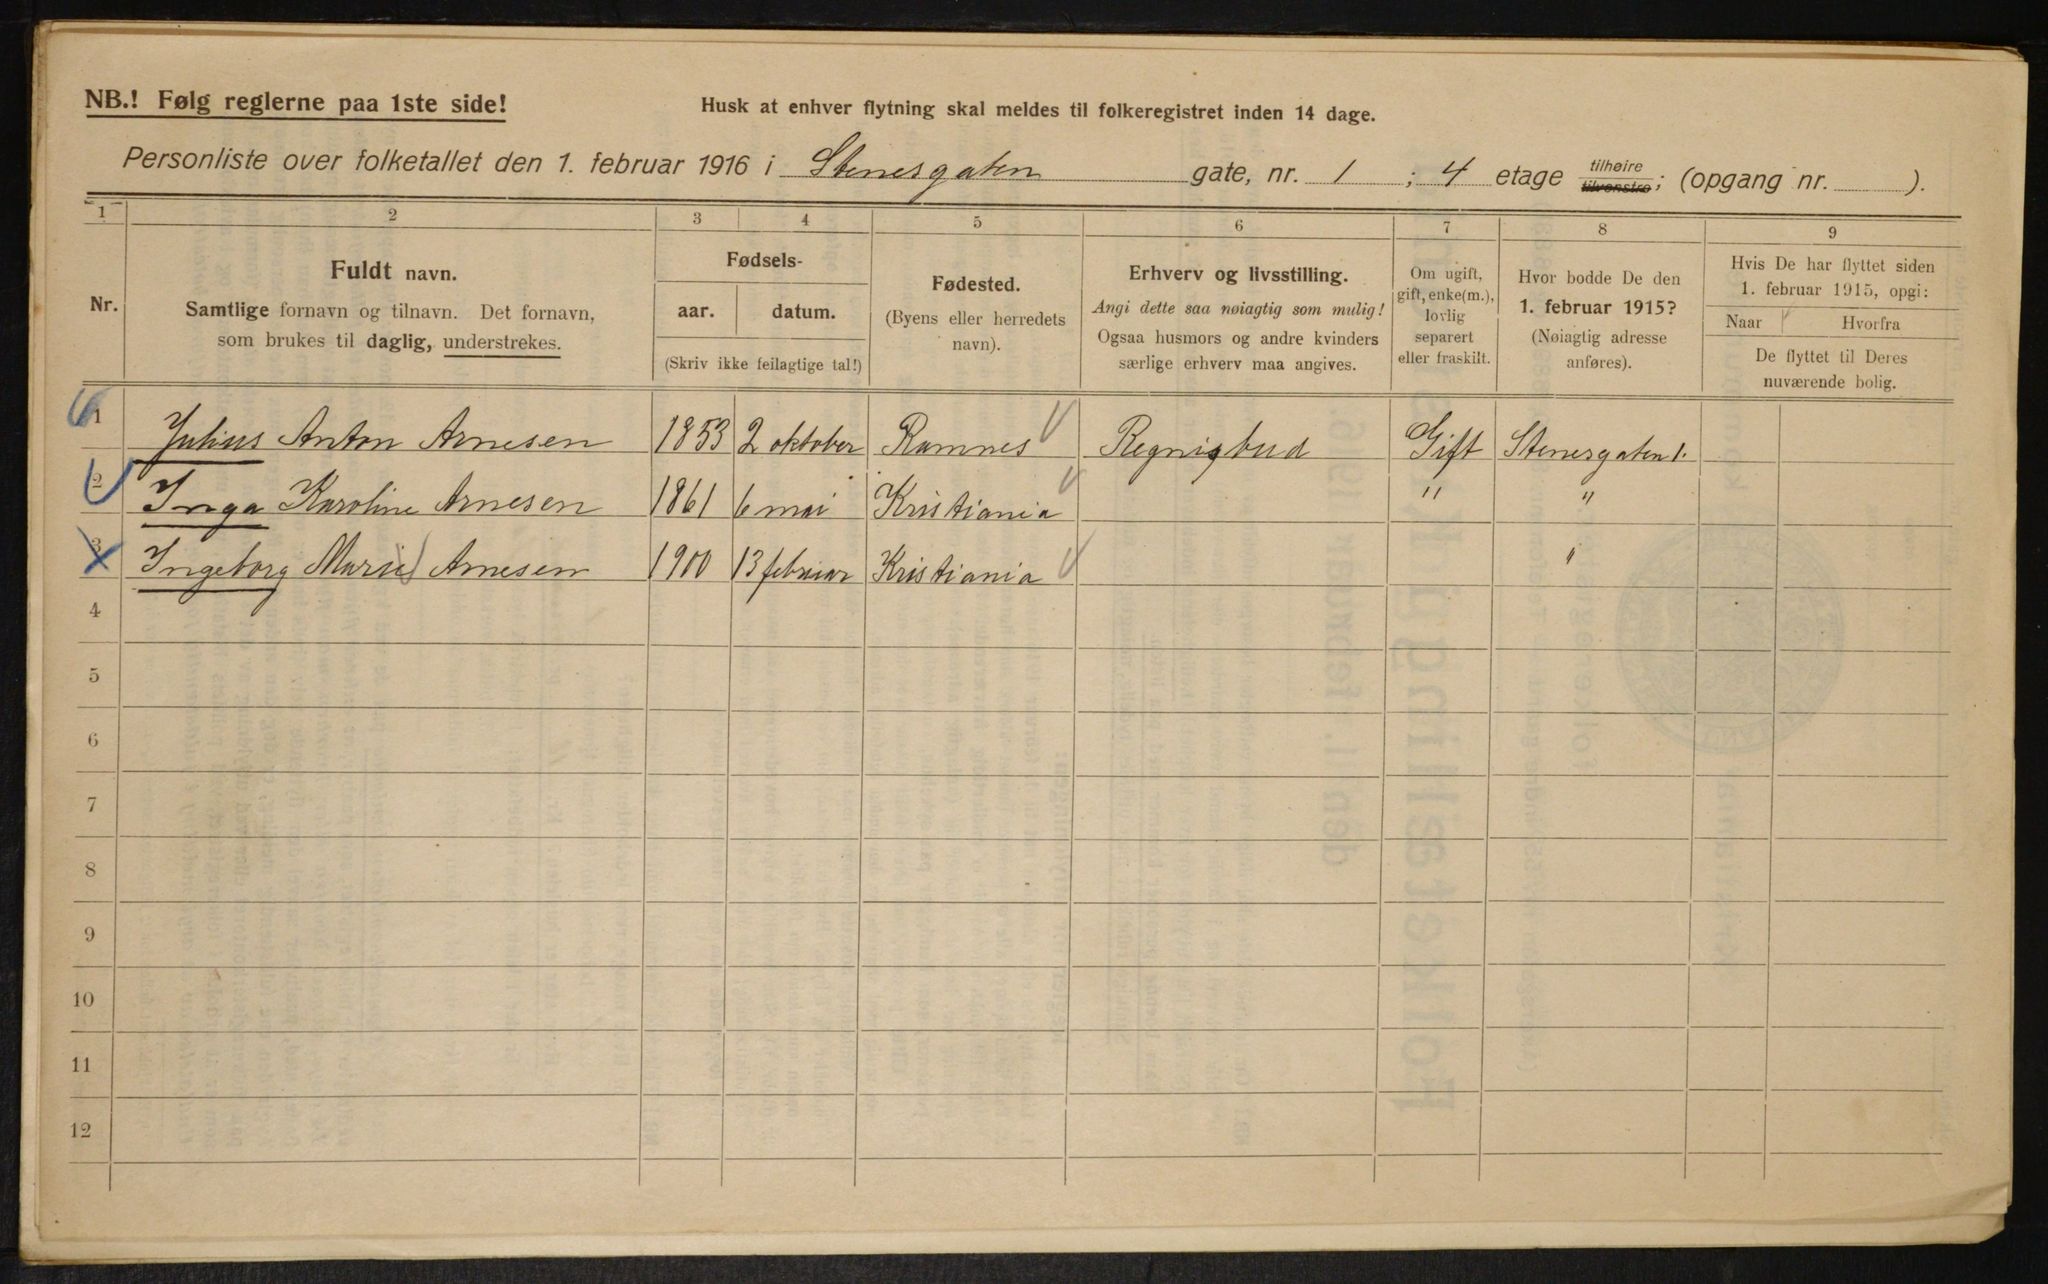 NB.! Følg reglerne paa 1ste side!
Husk at enhver flytning skal meldes til folkeregistret inden 14 dage.
Personliste over folketallet den 1. februar 1916 i Stenesgaten gate, nr. 1 ; 4 etage tilhøire tilvenstre; (opgang nr. ).
1 2 3 4 5 6 7 8 9
Nr.
Fuldt navn.
Samtlige fornavn og tilnavn. Det fornavn,
som brukes til daglig, understrekes.
Fødsels-
aar. datum.
(Skriv ikke feilagtige tal!)
Fødested.
(Byens eller herredets
navn).
Erhverv og livsstilling.
Angi dette saa nøiagtig som mulig!
Ogsaa husmors og andre kvinders
særlige erhverv maa angives.
Om ugift,
gift, enke(m.),
lovlig
separert
eller fraskilt.
Hvor bodde De den
1. februar 1915?
(Nøiagtig adresse
anføres).
Hvis De har flyttet siden
1. februar 1915, opgi:
Naar Hvorfra
De flyttet til Deres
nuværende bolig.
1 Julius Anton Arnesen 1853 2 oktober Ramnes Gift Stenersgaten 1.
2 Inga Karoline Arnesen 1861 6 mai Kristiania " "
3 Ingeborg Marie Arnesen 1900 13 februar Kristiania "
4
5
6
7
8
9
10
11
12